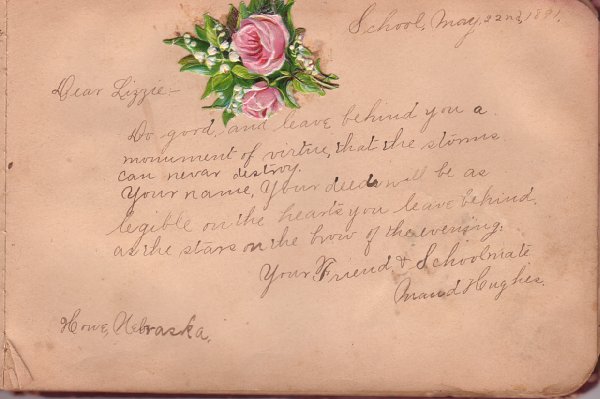 School, May 22nd, 1891.
Dear Lizzie:-
Do good, and leave behind you a
monument of virtue, that the storms
can never destroy.
Your name, Your deeds will be as
legible on the hearts you leave behind,
as the stars on the brow of the evening.
Your Friend & Schoolmate
Maud Hughes.
Howe, Nebraska.